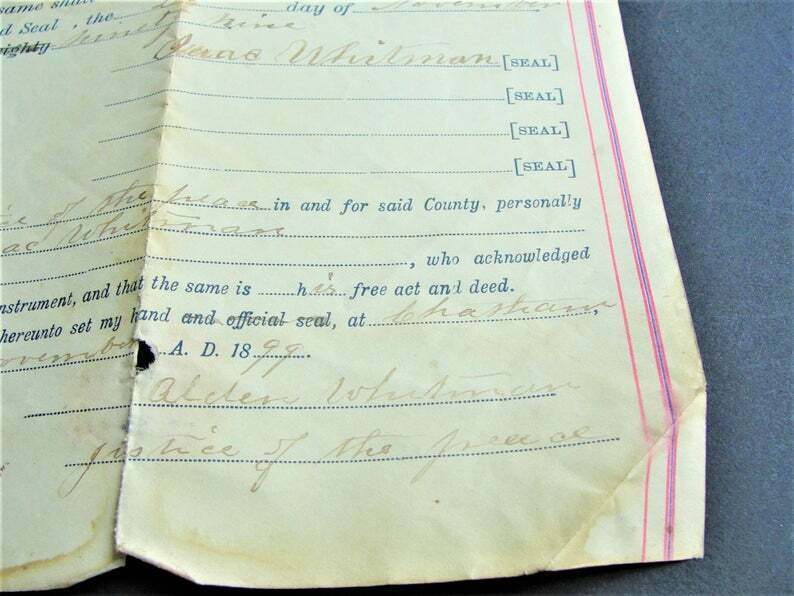 same shall day of November
d Seal, the
eighty ninety nine
Isaac Whitman [SEAL]
[SEAL]
[SEAL]
[SEAL]
ice of the peace in and for said County, personally
aac Whitman
, who acknowledged
nstrument, and that the same is his free act and deed.
hereunto set my hand and official seal, at Chatham,
ovember A. D. 1899.
Alden Whitman
justice of the peace